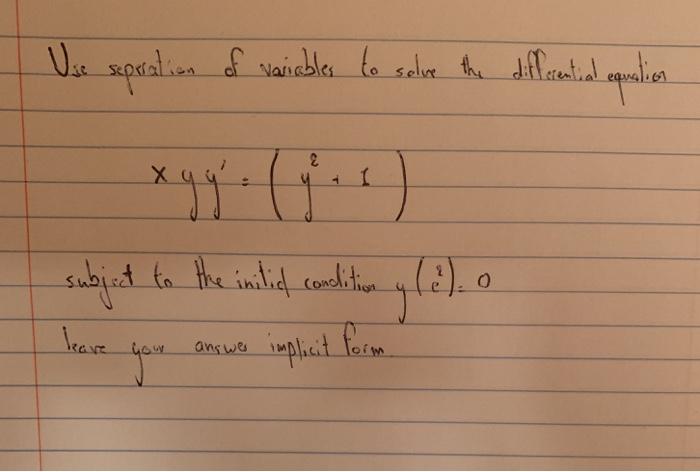 Use seperation of variables to solve the differential equation
x y y' = ( y² + 1 )
subject to the initial condition y (e²) = 0
leave your answer implicit form.